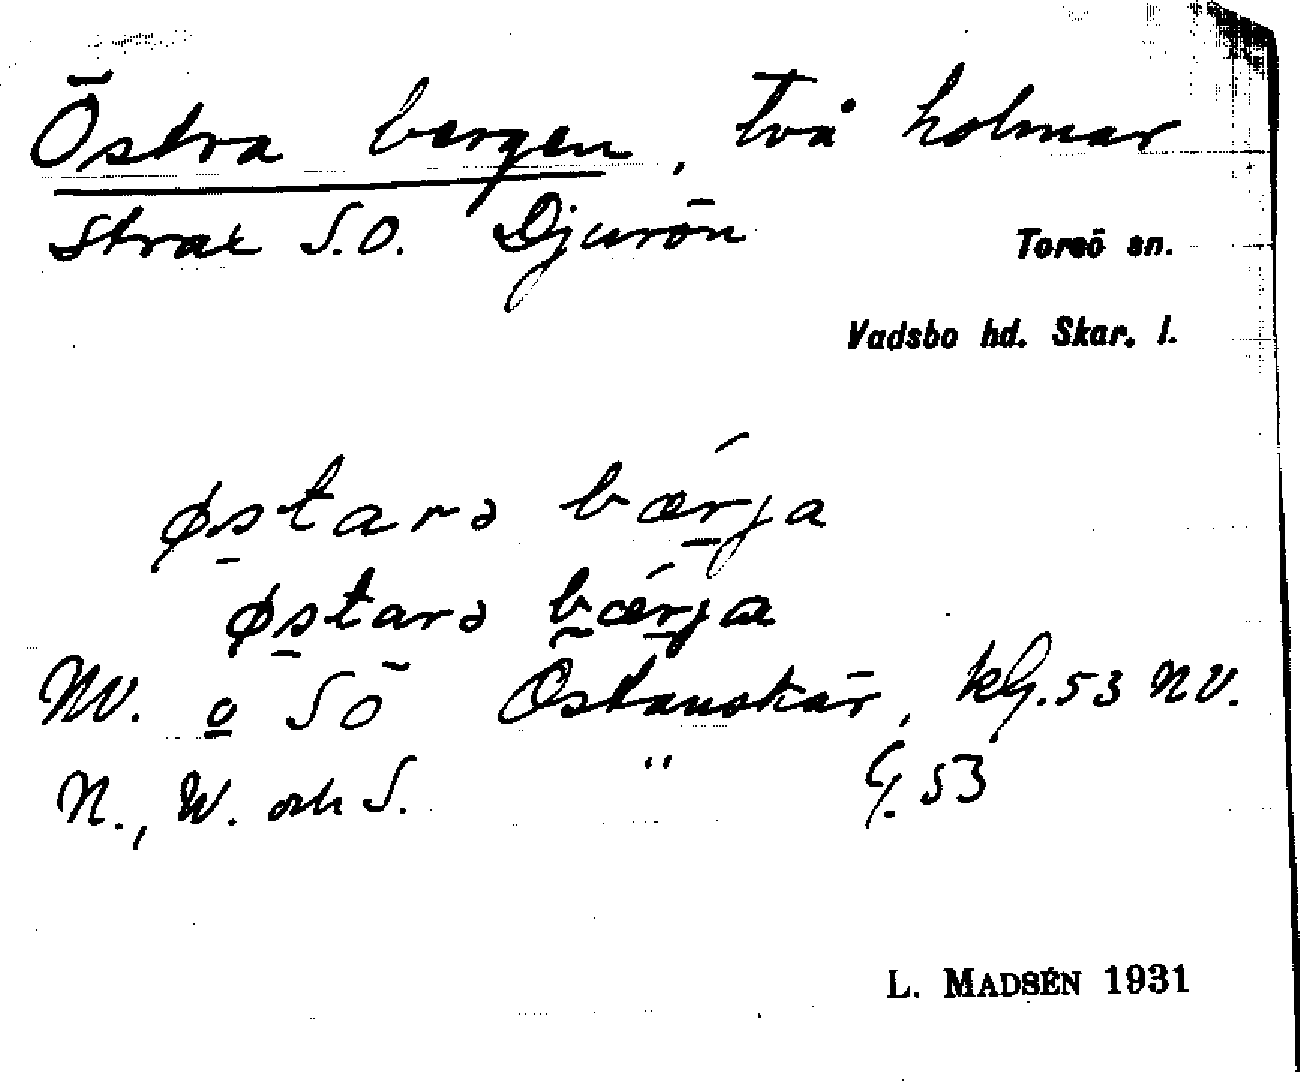 Östra bergen, två holmar
strax S.O. Djurön
Torsö sn.
Vadsbo hd. Skar. l.
østarə bærja
østarə bærja
NV. o SÖ Östanskär, kG.53 NV.
N., W. och S. " G. 53
L. MADSÉN 1931